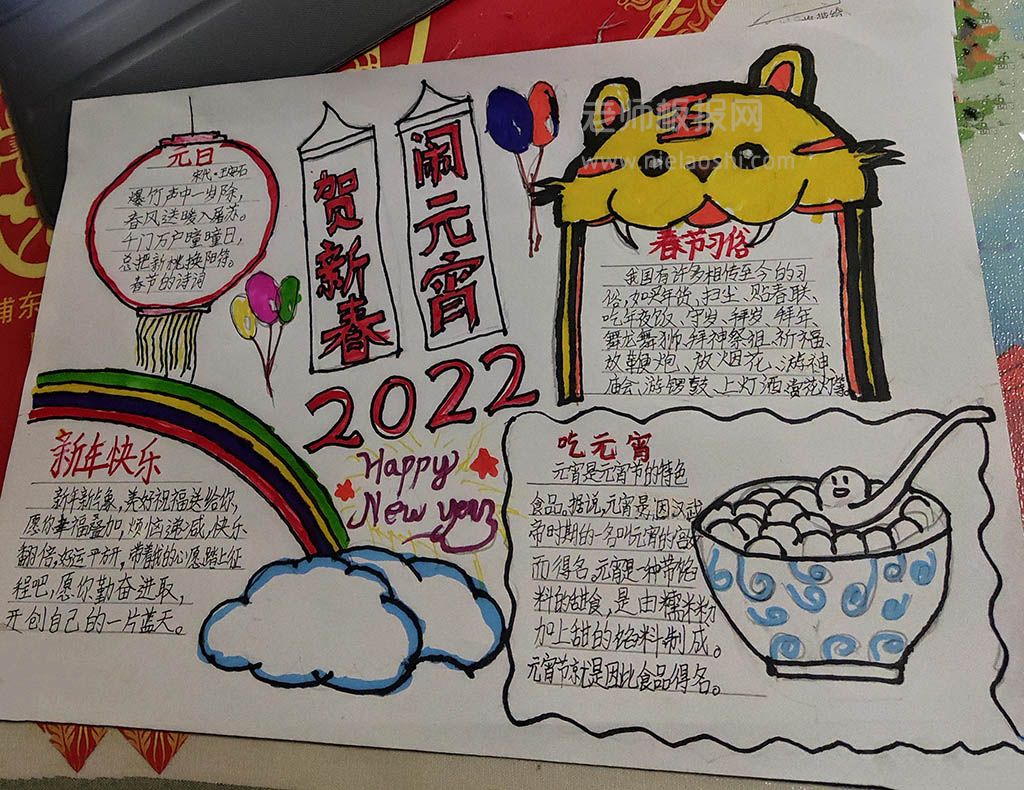 元日
宋代·王安石
爆竹声中一岁除，
春风送暖入屠苏。
千门万户曈曈日，
总把新桃换阳符。
春节的诗词
贺新春
闹元宵
2022
Happy
New year
老师板报网
www.nielaoshi.com
春节习俗
我国有许多相传至今的习
俗，如买年货、扫尘、贴春联、
吃年夜饭、守岁、拜岁、拜年、
舞龙舞狮、拜神祭祖、祈福、
放鞭炮、放烟花、游神、
庙会、游锣鼓、上灯酒、赏花灯等
新年快乐
新年新气象，美好祝福送给你，
愿你幸福叠加，烦恼递减，快乐
翻倍，好运平方开，带着我的心愿踏上征
程吧，愿你勤奋进取，
开创自己的一片蓝天。
吃元宵
元宵是元宵节的特色
食品。据说，元宵是因汉武
帝时期的一名叫元宵的宫
而得名。元宵是一种带馅
料的甜食，是由糯米粉
加上甜的馅料制成。
元宵节就是因比食品得名。
浦东